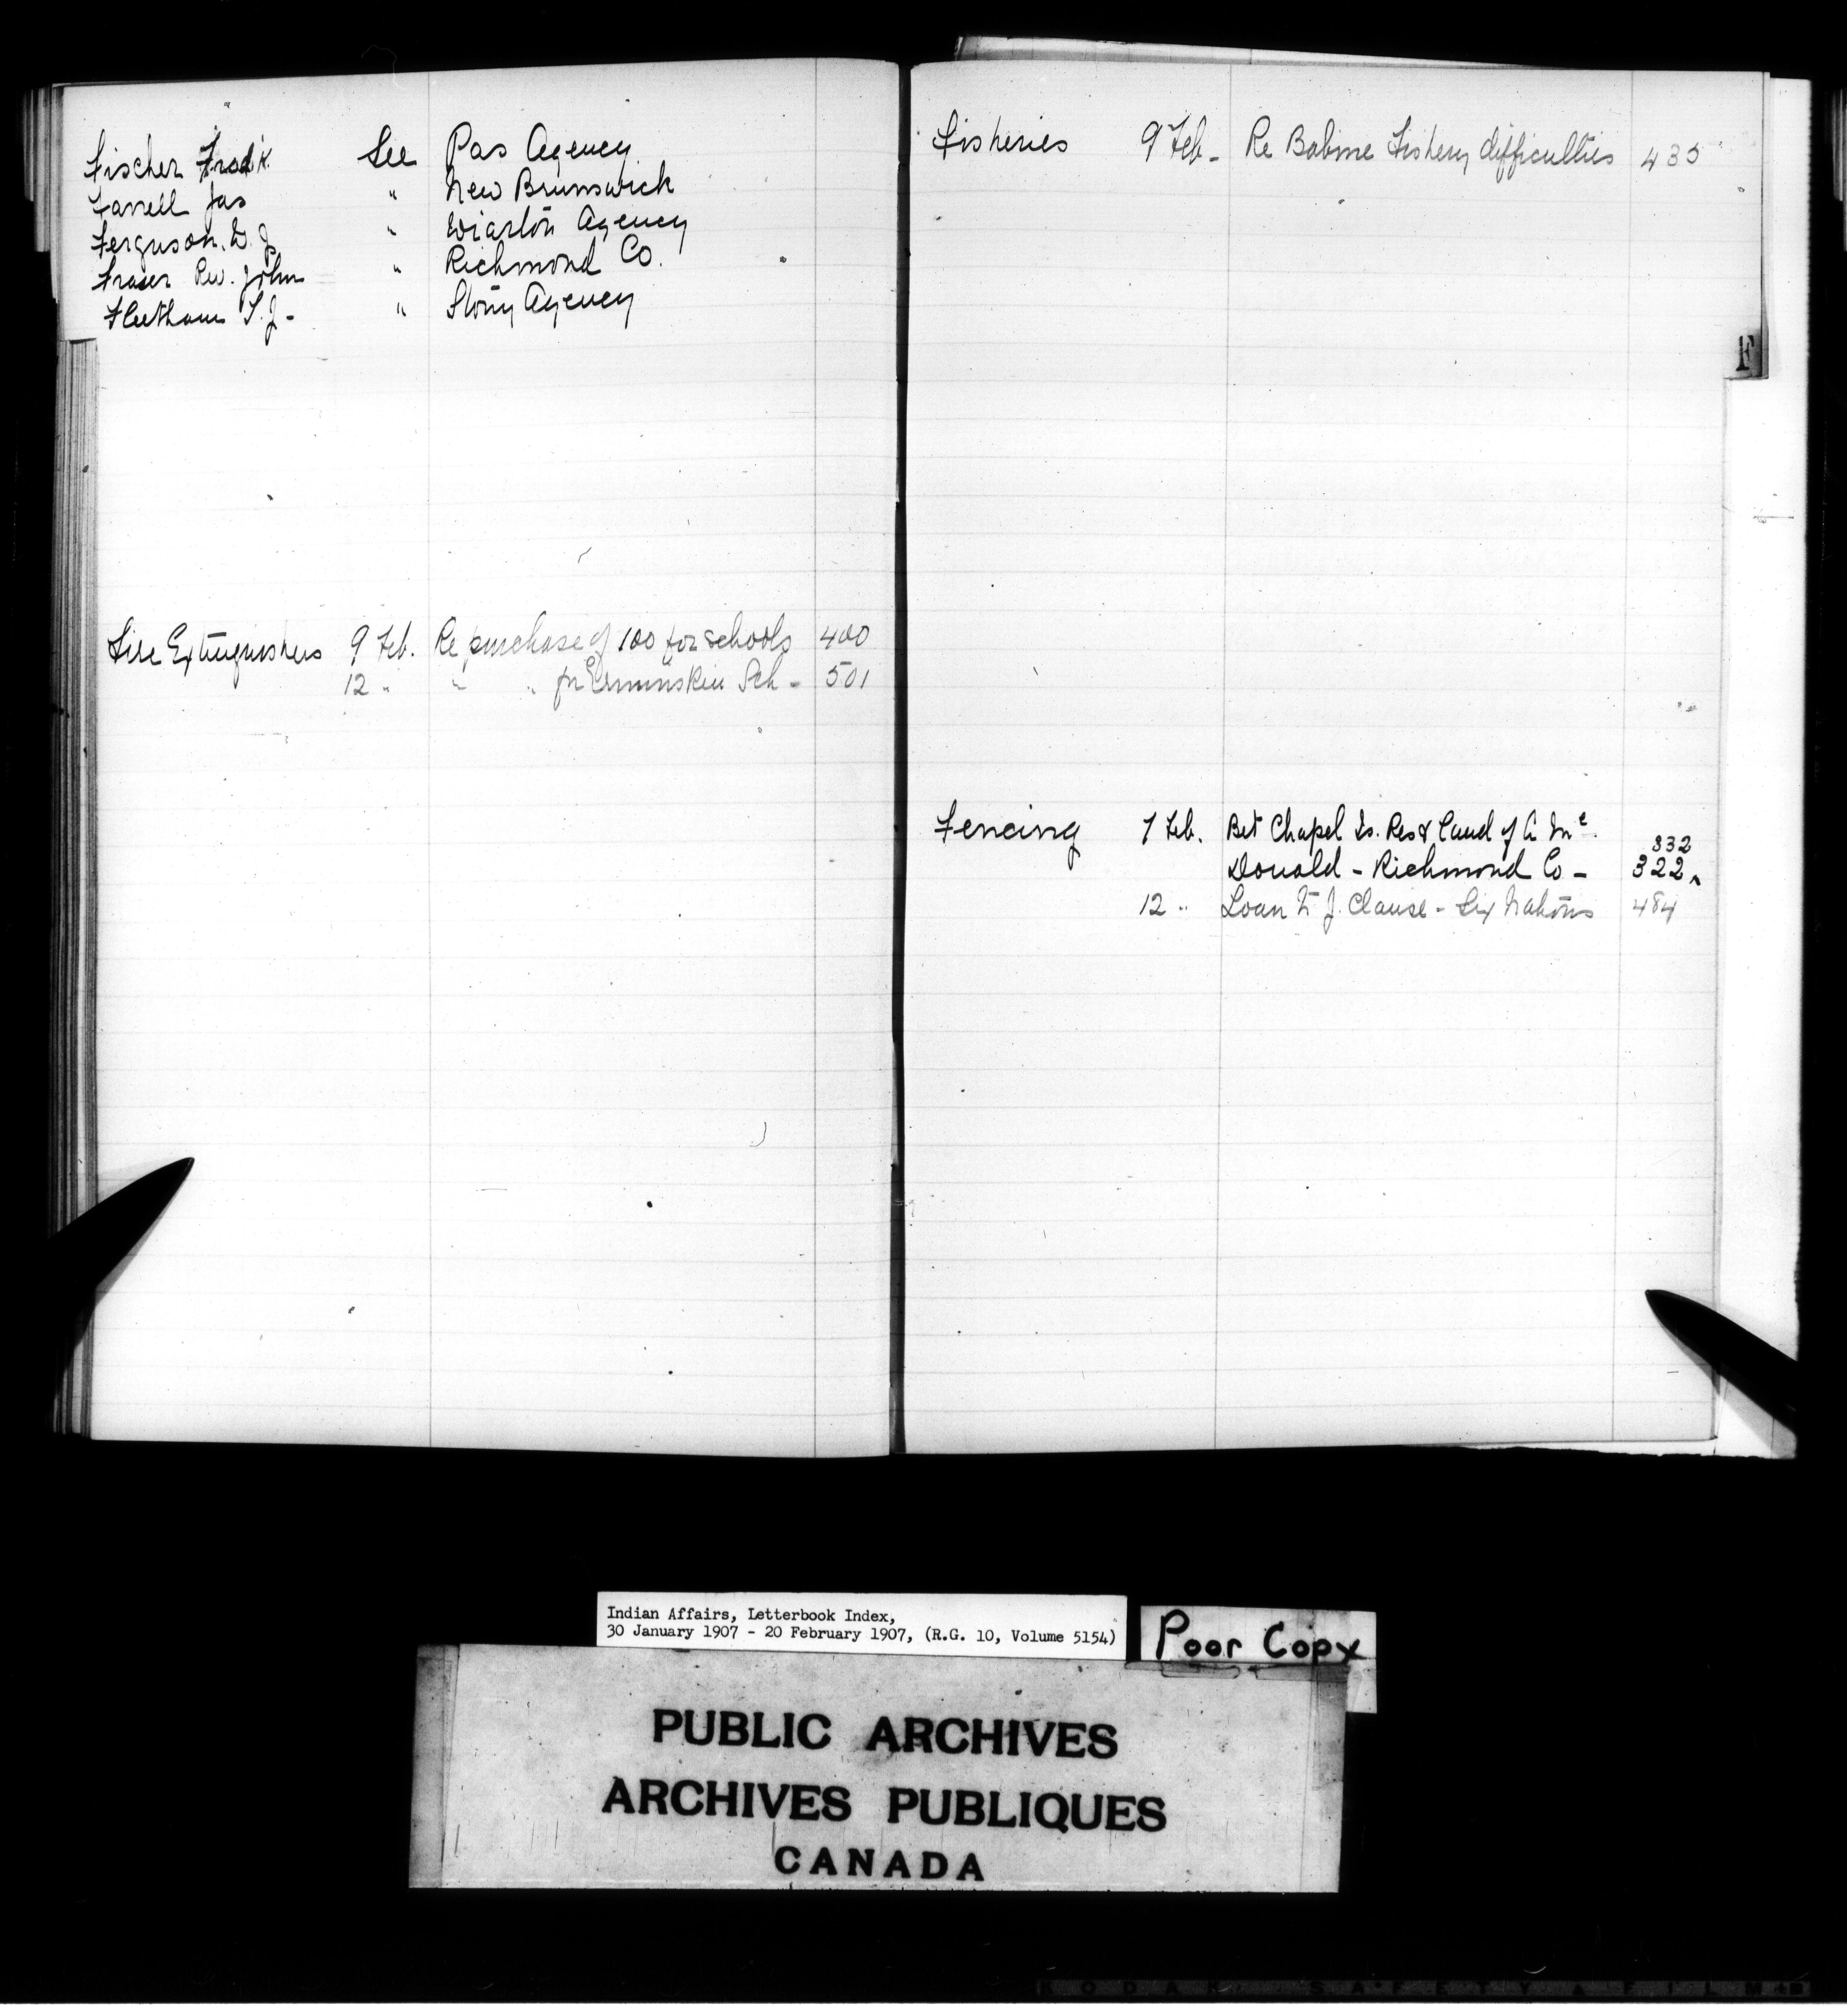 Fischer Fred'k. See Pas Agency.
Farrell Jas " New Brunswick
Ferguson. D. J. " Wiarton Agency
Fraser Rev. John " Richmond Co.
Fleetham T. J. - " Stony Agency
Fire Extinguishers 9 Feb. Re purchase of 100 for schools 400
12 " " " for Ermineskin Sch - 501
Fisheries 9 Feb - Re Babine Fishery difficulties 435
F
Fencing 7 Feb. Bet Chapel Is. Res & land of A Mc
Donald - Richmond Co - 322 332
12 " Loan to J. Clause - Six Nations 484
Indian Affairs, Letterbook Index,
30 January 1907 - 20 February 1907, (R.G. 10, Volume 5154)
Poor Copy
PUBLIC ARCHIVES
ARCHIVES PUBLIQUES
CANADA
KODAK SAFETY FILM